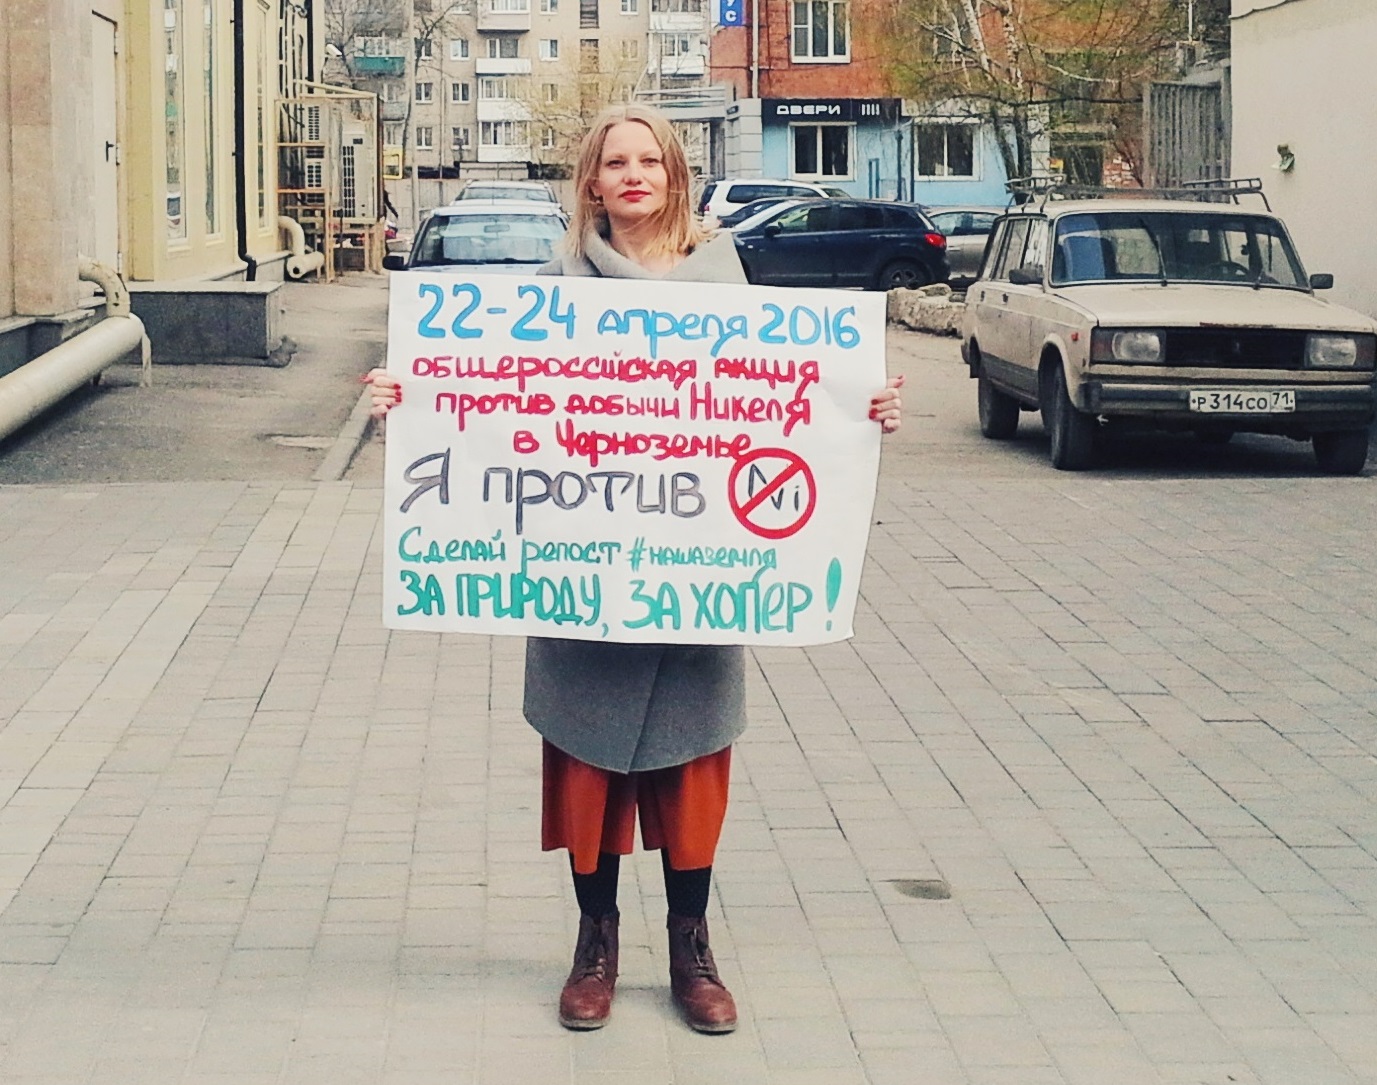 УС
ДВЕРИ
22-24 апреля 2016
общероссийская акция
против добычи Никеля
в Черноземье
Я против Ni
Сделай репост #нашаземля
ЗА ПРИРОДУ, ЗА ХОПЕР!
Р314СО 71